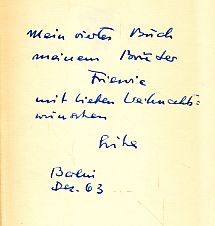 Mein viertes Buch
meinem Bruder
mit lieben Weihnachts-
wünschen
Berlin
Dez. 63